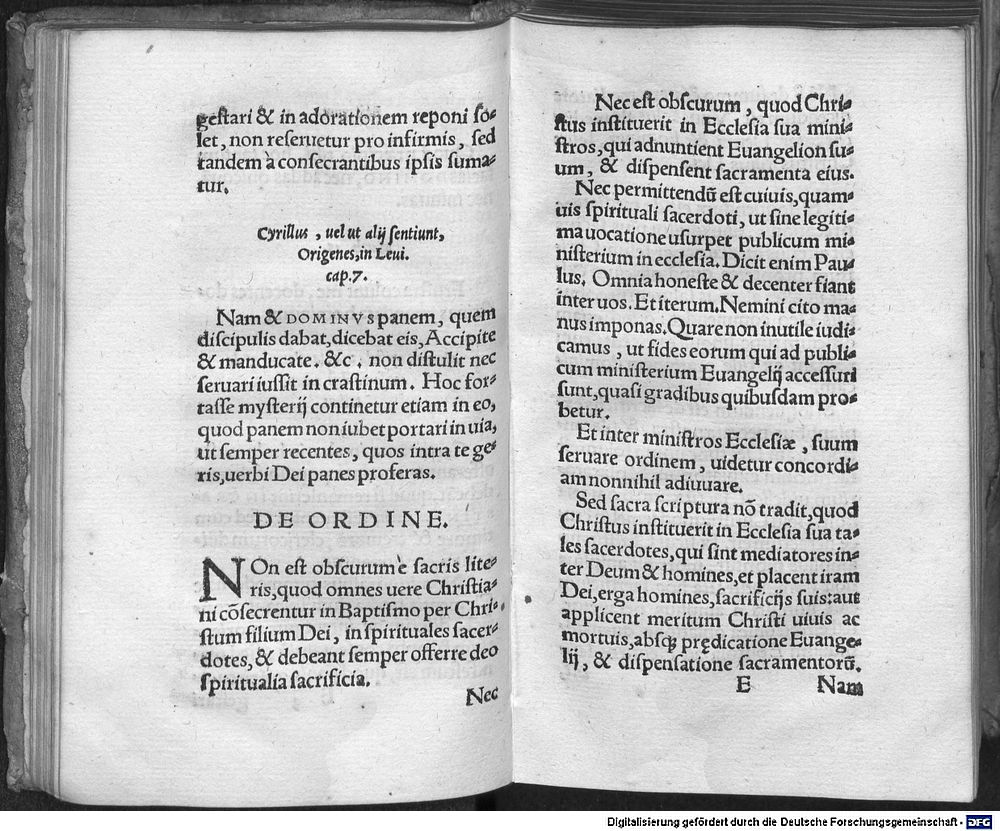 geſtari & in adorationem reponi ſo-
let, non reſeruetur pro infirmis, ſed
tandem à conſecrantibus ipſis ſuma-
tur.
Cyrillus, uel ut alij ſentiunt,
Origenes, in Leui.
cap. 7.
Nam & DOMINVS panem, quem
diſcipulis dabat, dicebat eis, Accipite
& manducate. &c. non diſtulit nec
ſeruari iuſsit in craſtinum. Hoc for-
taſſe myſterij continetur etiam in eo,
quod panem non iubet portari in uia,
ut ſemper recentes, quos intra te ge-
ris, uerbi Dei panes proferas.
DE ORDINE.
NOn eſt obſcurum è ſacris lite-
ris, quod omnes uere Chriſtia-
ni cõſecrentur in Baptiſmo per Chri-
ſtum filium Dei, in ſpirituales ſacer-
dotes, & debeant ſemper offerre deo
ſpiritualia ſacrificia.
Nec
Nec eſt obſcurum, quod Chri-
ſtus inſtituerit in Eccleſia ſua mini-
ſtros, qui adnuntient Euangelion ſu-
um, & diſpenſent ſacramenta eius.
Nec permittendũ eſt cuiuis, quam-
uis ſpirituali ſacerdoti, ut ſine legiti-
ma uocatione uſurpet publicum mi-
niſterium in eccleſia. Dicit enim Pau-
lus. Omnia honeſte & decenter fiant
inter uos. Et iterum. Nemini cito ma-
nus imponas. Quare non inutile iudi-
camus, ut fides eorum qui ad publi-
cum miniſterium Euangelij acceſſuri
ſunt, quaſi gradibus quibuſdam pro-
betur.
Et inter miniſtros Eccleſiæ, ſuum
ſeruare ordinem, uidetur concordi-
am nonnihil adiuuare.
Sed ſacra ſcriptura nõ tradit, quod
Chriſtus inſtituerit in Eccleſia ſua ta-
les ſacerdotes, qui ſint mediatores in-
ter Deum & homines, et placent iram
Dei, erga homines, ſacrificijs ſuis: aut
applicent meritum Chriſti uiuis ac
mortuis, abſqꝫ prędicatione Euange-
lij, & diſpenſatione ſacramentorũ.
E Nam
Digitalisierung gefördert durch die Deutsche Forschungsgemeinschaft - DFG